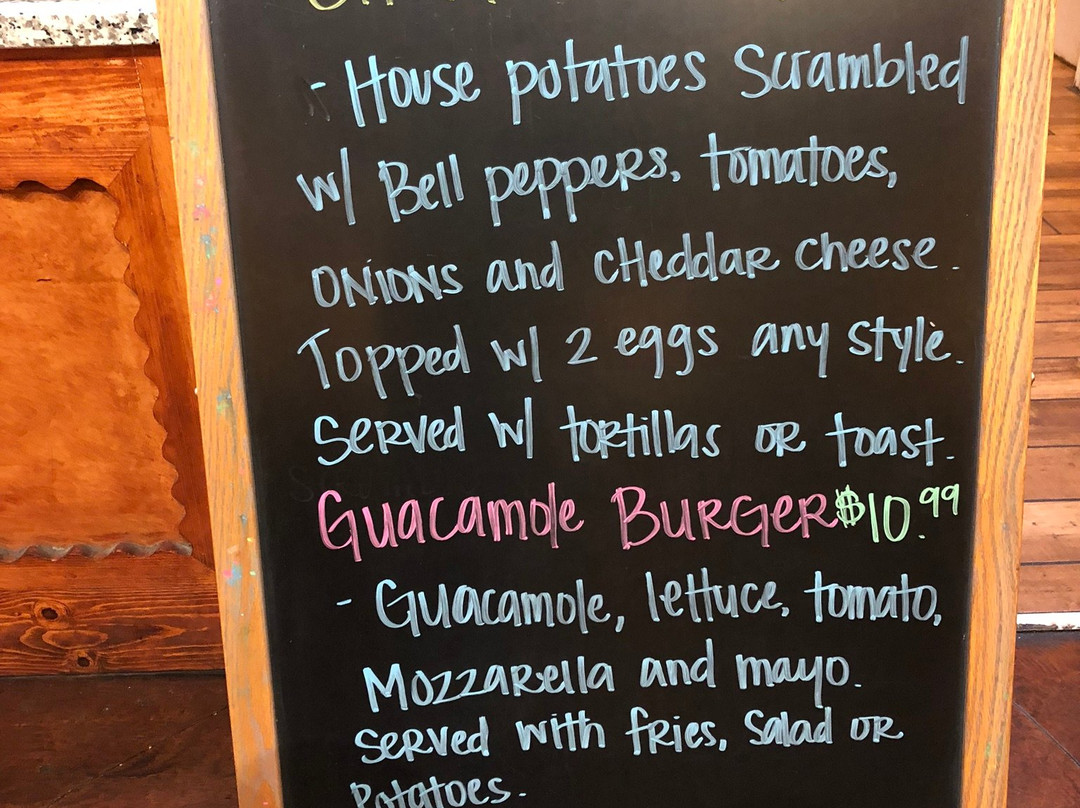 - House potatoes Scrambled
w/ Bell peppers, tomatoes,
onions and cheddar cheese.
Topped w/ 2 eggs any style.
Served w/ tortillas or toast.
Guacamole Burger $10.99
- Guacamole, lettuce, tomato,
Mozzarella and mayo.
served with fries, salad or
Potatoes.